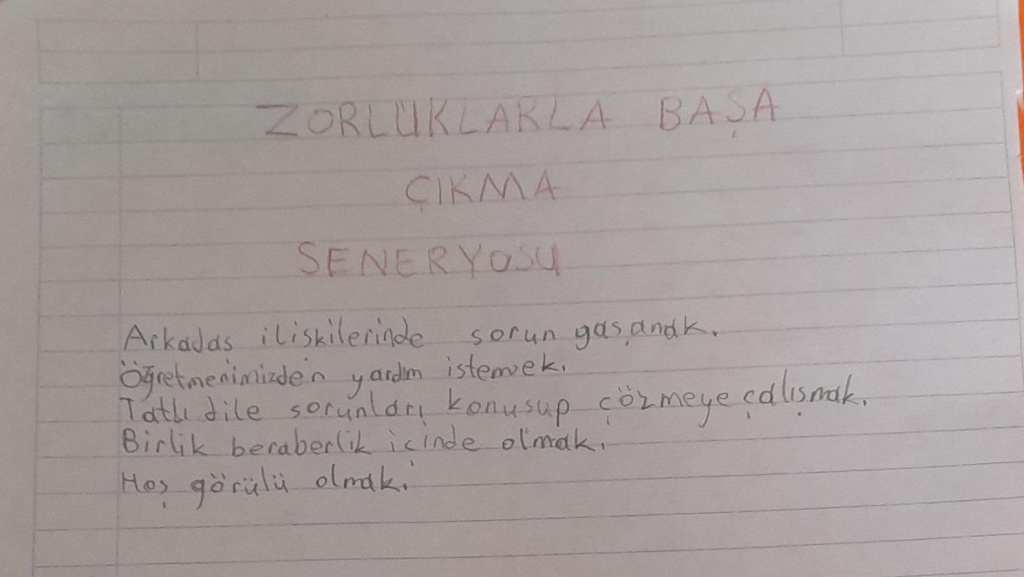 ZORLUKLARLA BAŞA
ÇIKMA
SENERYOSU
Arkadas iliskilerinde sorun yaşamak.
Öğretmenimizden yardım istemek.
Tatlı dile sorunları konusup çözmeye çalışmak.
Birlik beraberlik içinde olmak.
Hoş görülü olmak.